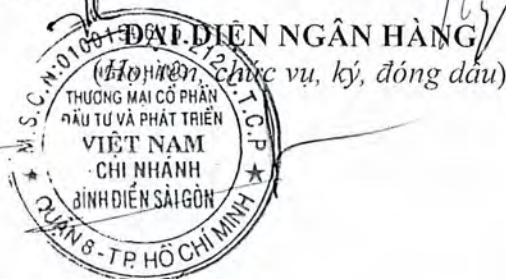 ĐẠI DIỆN NGÂN HÀNG
(Họ, tên, chức vụ, ký, đóng dấu)
THƯƠNG MẠI CỔ PHẦN
ĐẦU TƯ VÀ PHÁT TRIỂN
VIỆT NAM
CHI NHÁNH
BÌNH ĐIỀN SÀI GÒN
QUẬN 8 - TP. HỒ CHÍ MINH